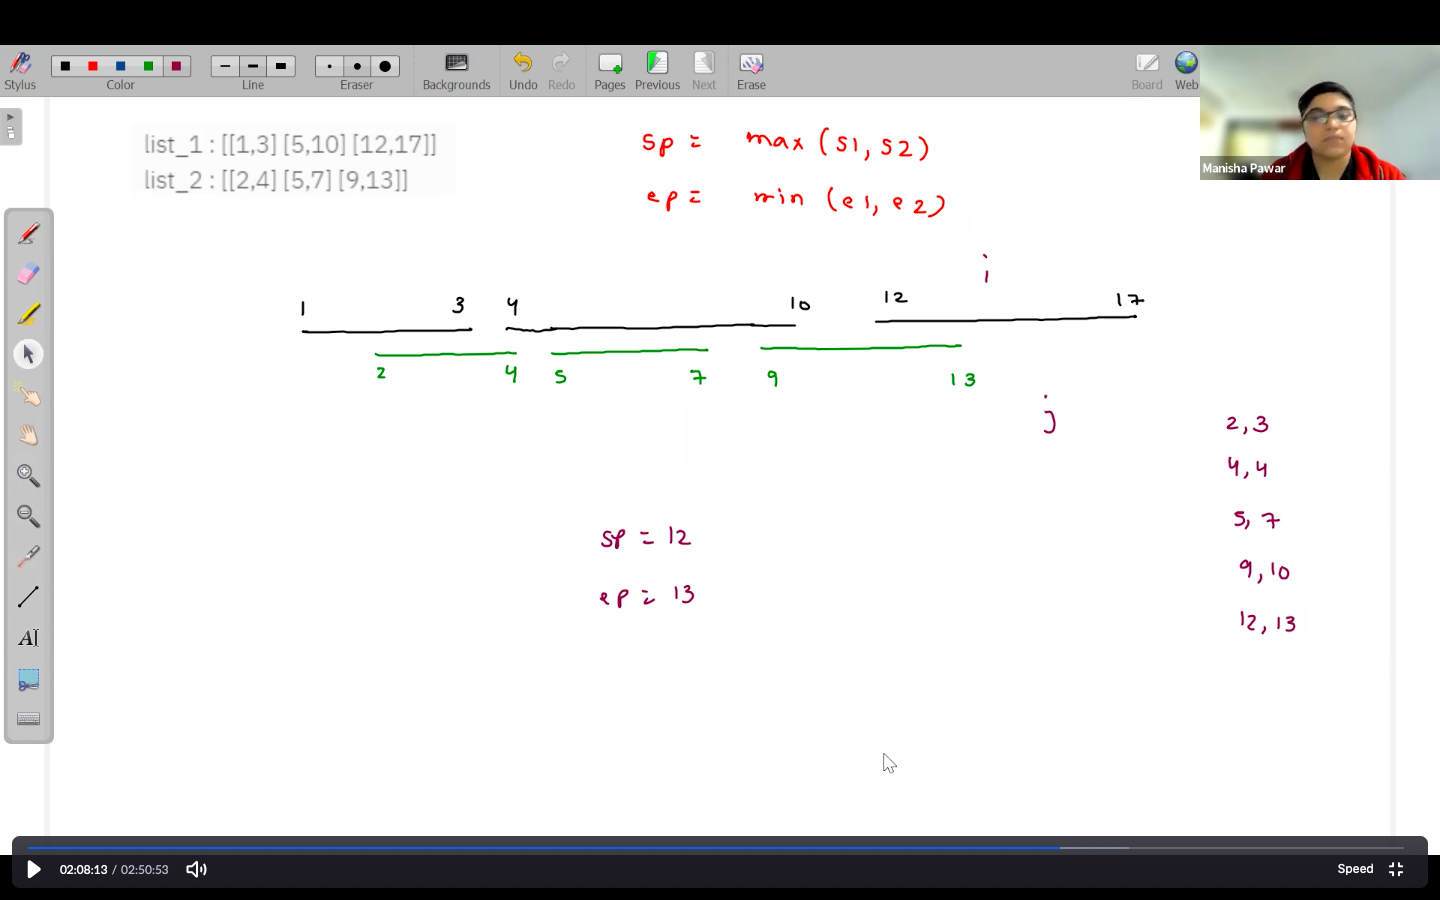 Stylus Color Line Eraser Backgrounds Undo Redo Pages Previous Next Erase Board Web
Manisha Pawar
list_1 : [[1,3] [5,10] [12,17]]
list_2 : [[2,4] [5,7] [9,13]]
sp = max (s1, s2)
ep = min (e1, e2)
i
1 3 4 10 12 17
2 4 5 7 9 13
j
2, 3
4, 4
5, 7
9, 10
12, 13
sp = 12
ep = 13
AI
02:08:13 / 02:50:53 Speed